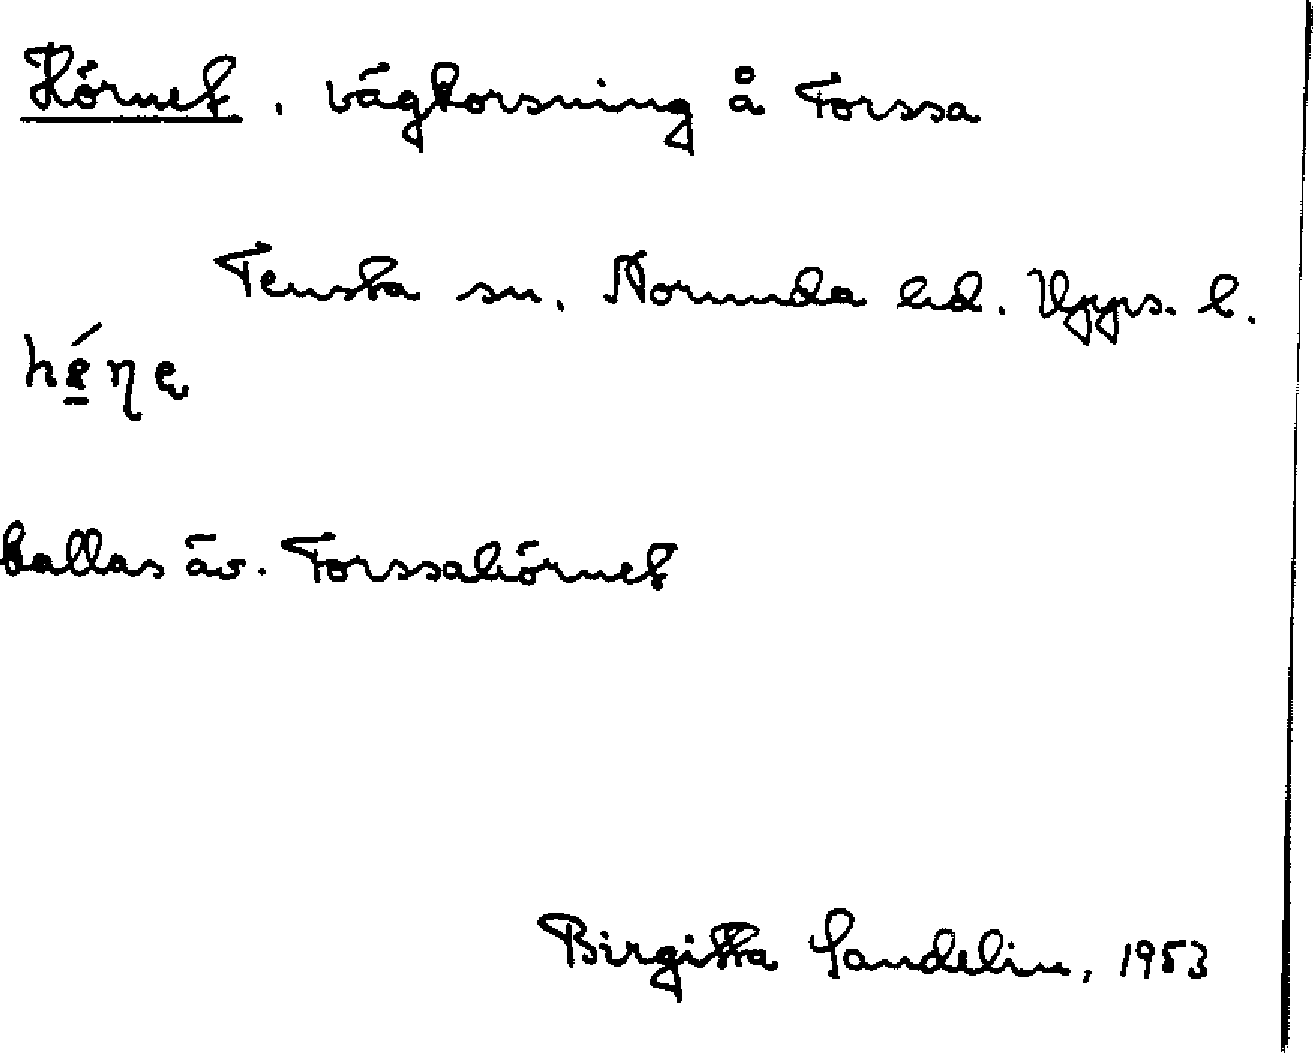 Hörnet. vägkorsning å Forssa
Tensta sn. Norunda hd. Upps. l.
kallas äv. Forssahörnet
Birgitta Sandelin, 1953